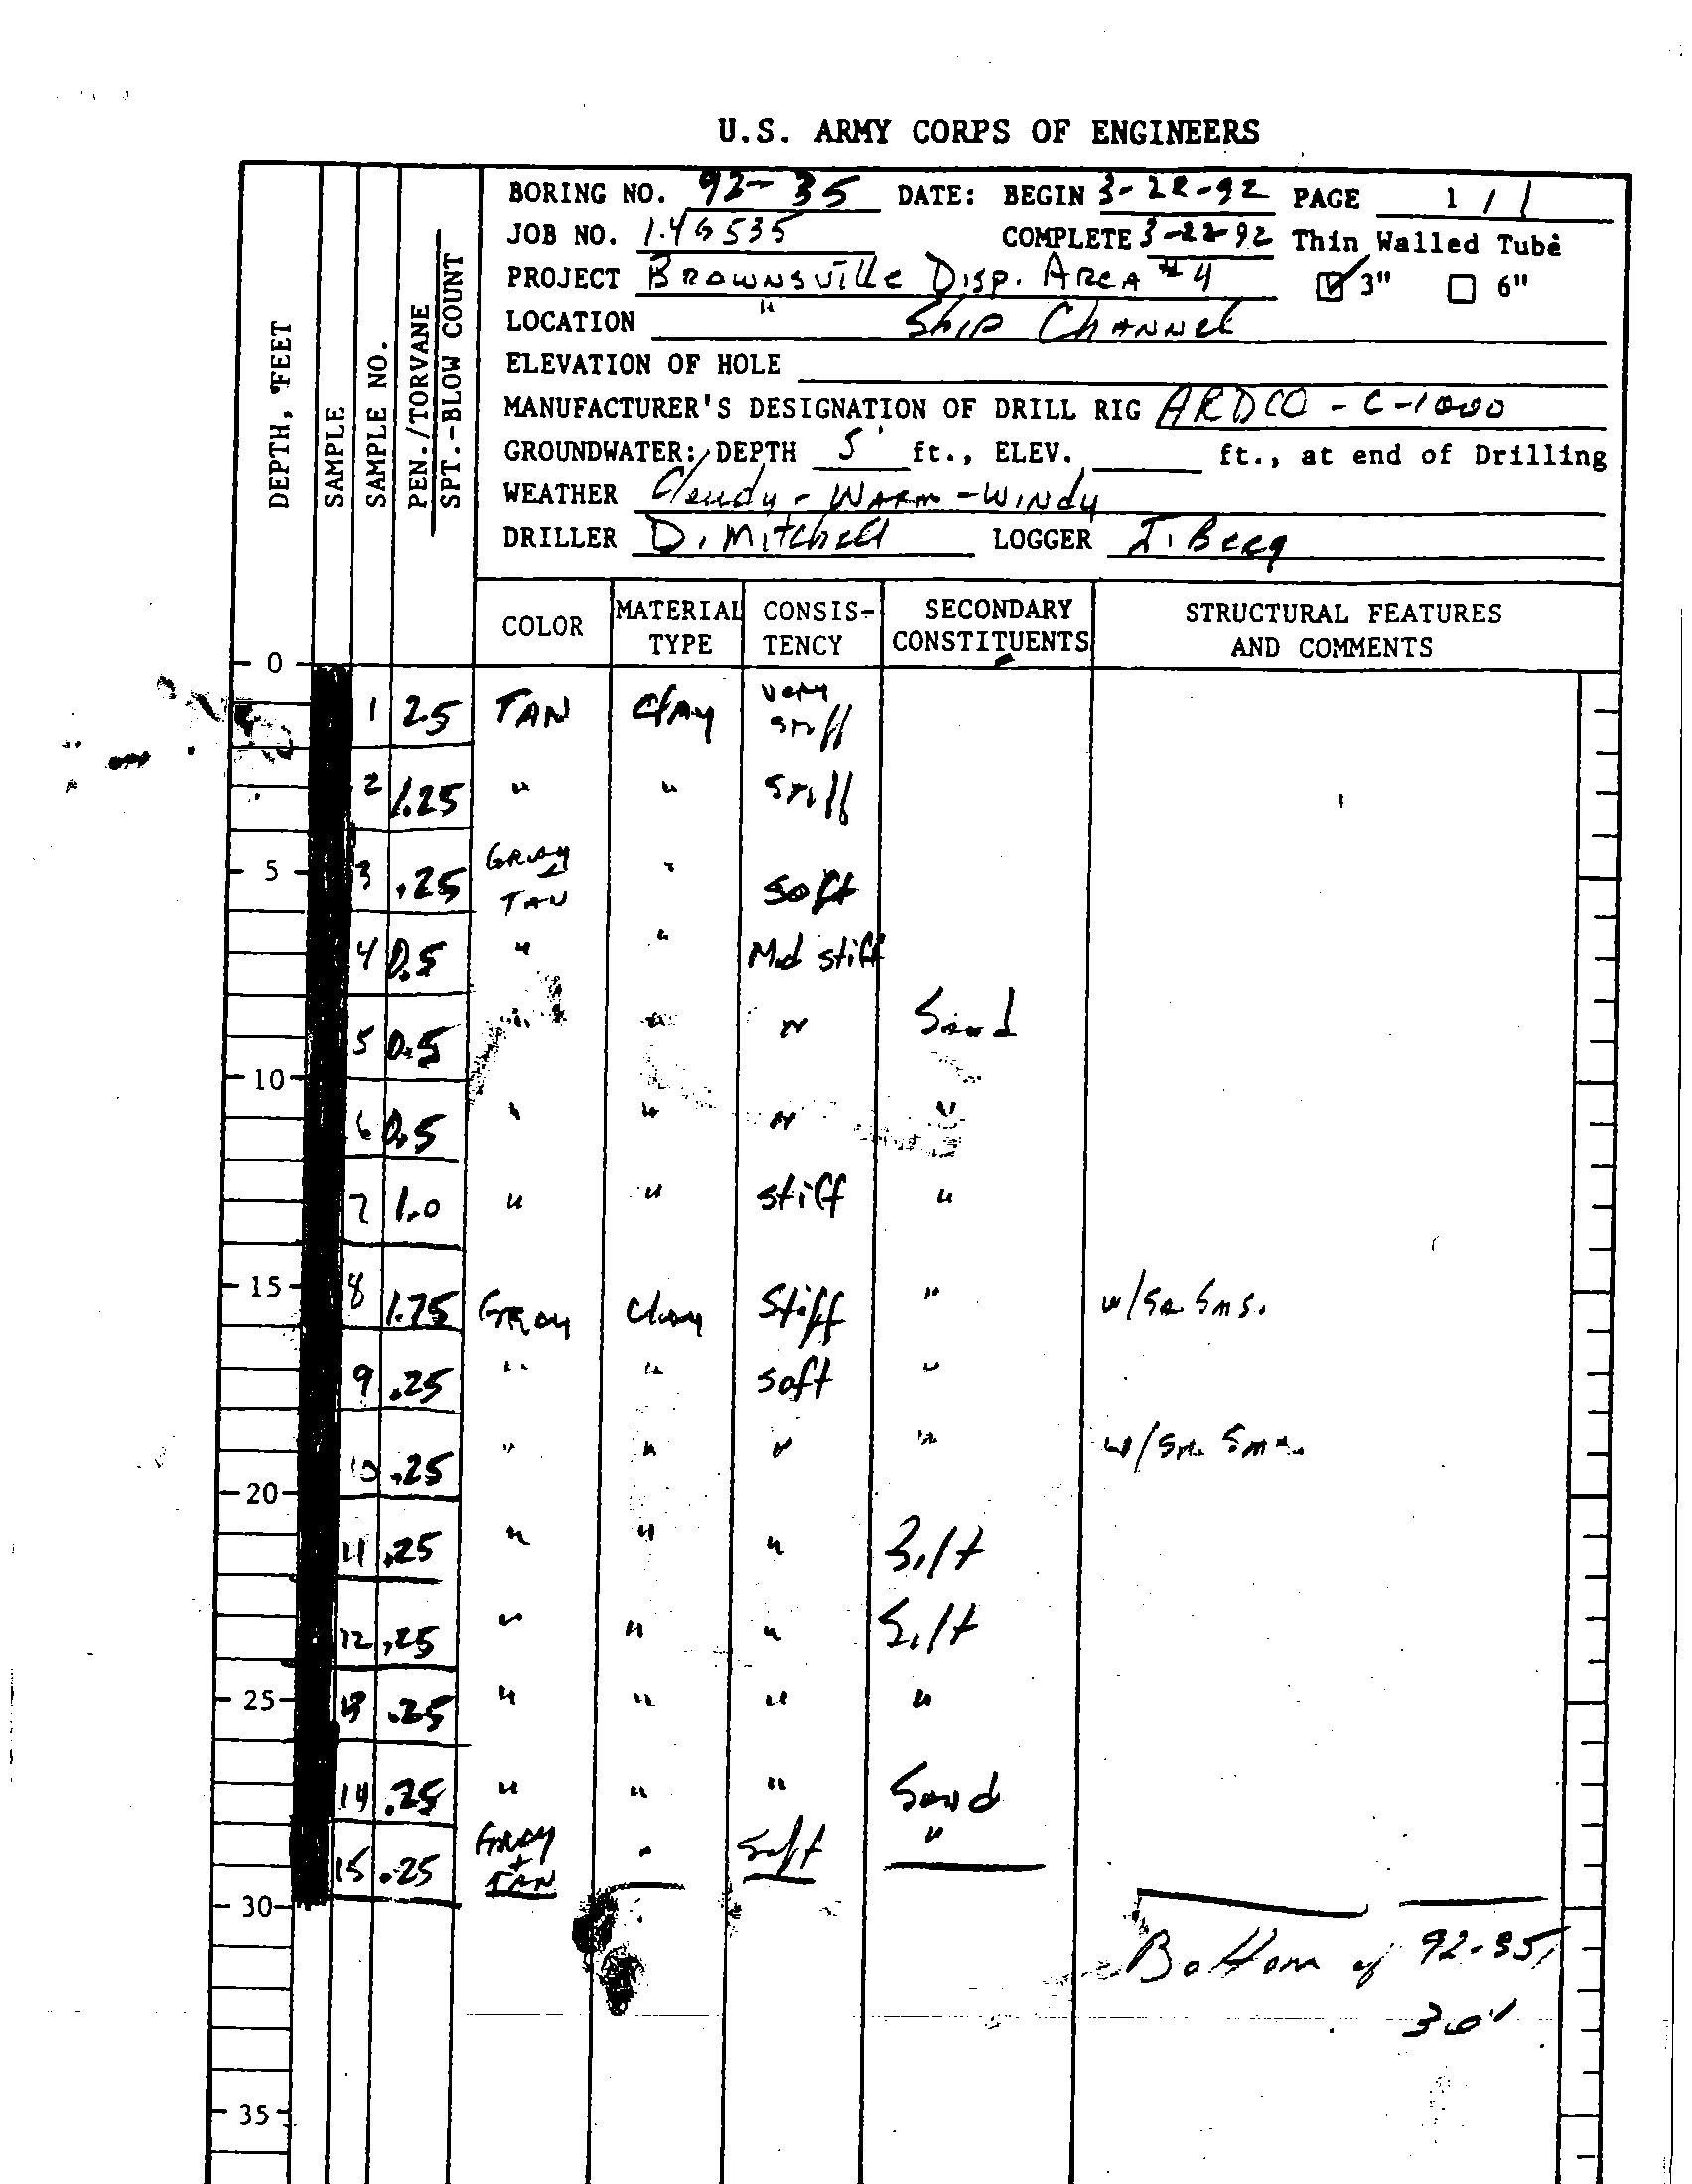 U.S. ARMY CORPS OF ENGINEERS
BORING NO. 92-35 DATE: BEGIN 3-22-92 PAGE 1 / 1
JOB NO. COMPLETE 3-22-92 Thin Walled Tube
PROJECT BROWNSVILLE DISP. AREA #4 3" 6"
LOCATION " Ship CHANNEL
ELEVATION OF HOLE
MANUFACTURER'S DESIGNATION OF DRILL RIG ARDCO - C-1000
GROUNDWATER: DEPTH 5' ft., ELEV. ft., at end of Drilling
WEATHER Cloudy - WARM - WINdy
DRILLER D. Mitchell LOGGER
DEPTH, FEET
SAMPLE
SAMPLE NO.
PEN./TORVANE
SPT.-BLOW COUNT
COLOR MATERIAL TYPE CONSIS- TENCY SECONDARY CONSTITUENTS STRUCTURAL FEATURES AND COMMENTS
0
1 25 TAN CLAY very stiff
2 1.25 " " stiff
5
3 .25 GRAY + TAN " soft
4 0.5 " " Med stiff
5 0.5 " " " Sand
10
6 0.5 " " " "
7 1.0 " " stiff "
15
8 1.75 GRAY Clay Stiff " w/
9 .25 " " soft "
10 .25 " " " " w/
20
11 .25 " " " Silt
12 .25 " " " Silt
25
13 .25 " " " "
14 .25 " " " Sand
15 .25 GRAY + TAN " Soft "
30
Bottom of 92-35,
30'
35